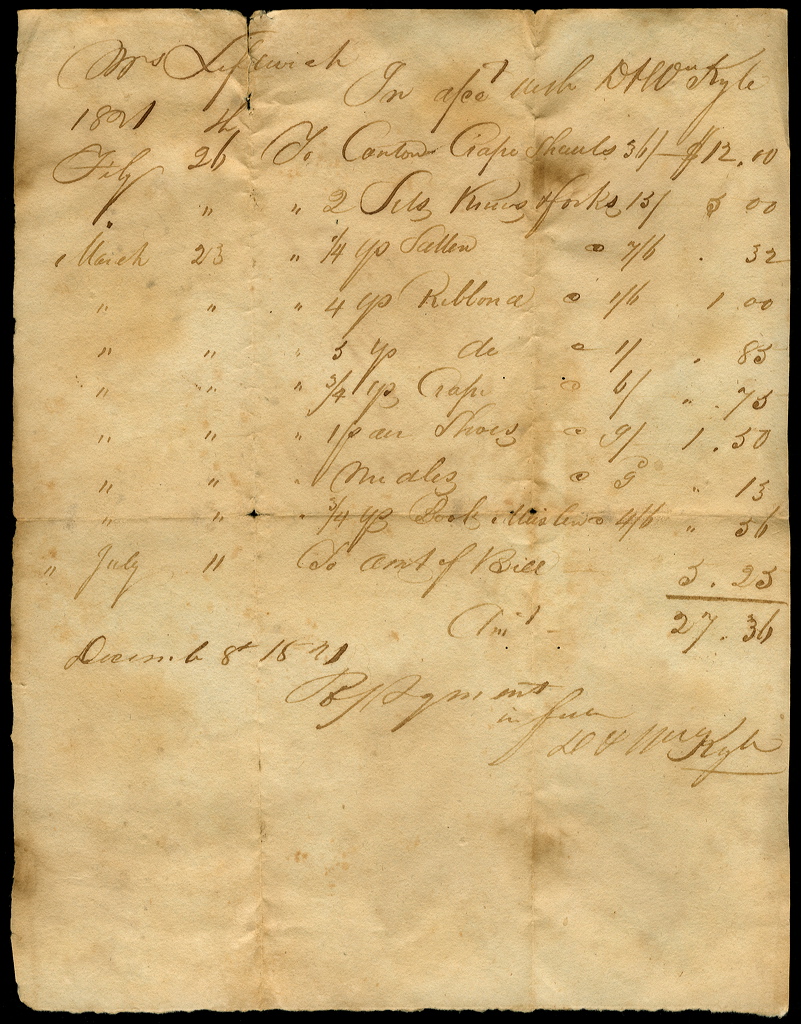 Mrs Leftwich
In acct with D & Wm Kyle
1821
Feby 26th To Canton Crape Shauls 36/ - $12.00
" " " 2 Sets Knives & forks 15/ 5 00
March 23 " 1/4 yd Satten @ 7/6 . 32
" " " 4 yds Ribbond @ 1/6 1 00
" " " 5 yds do @ 1/ . 83
" " " 3/4 yds Crape @ 6/ " .75
" " " 1 pair Shoes @ 9/ 1.50
" " " Needles @ 9d " 13
" " " 3/4 yds Book Muslin @ 4/6 " 56
" July 11 To Amt of Bill 5.25
Amt - 27.36
Decemb 8th 1821
Re payment
in full
D & Wm Kyle